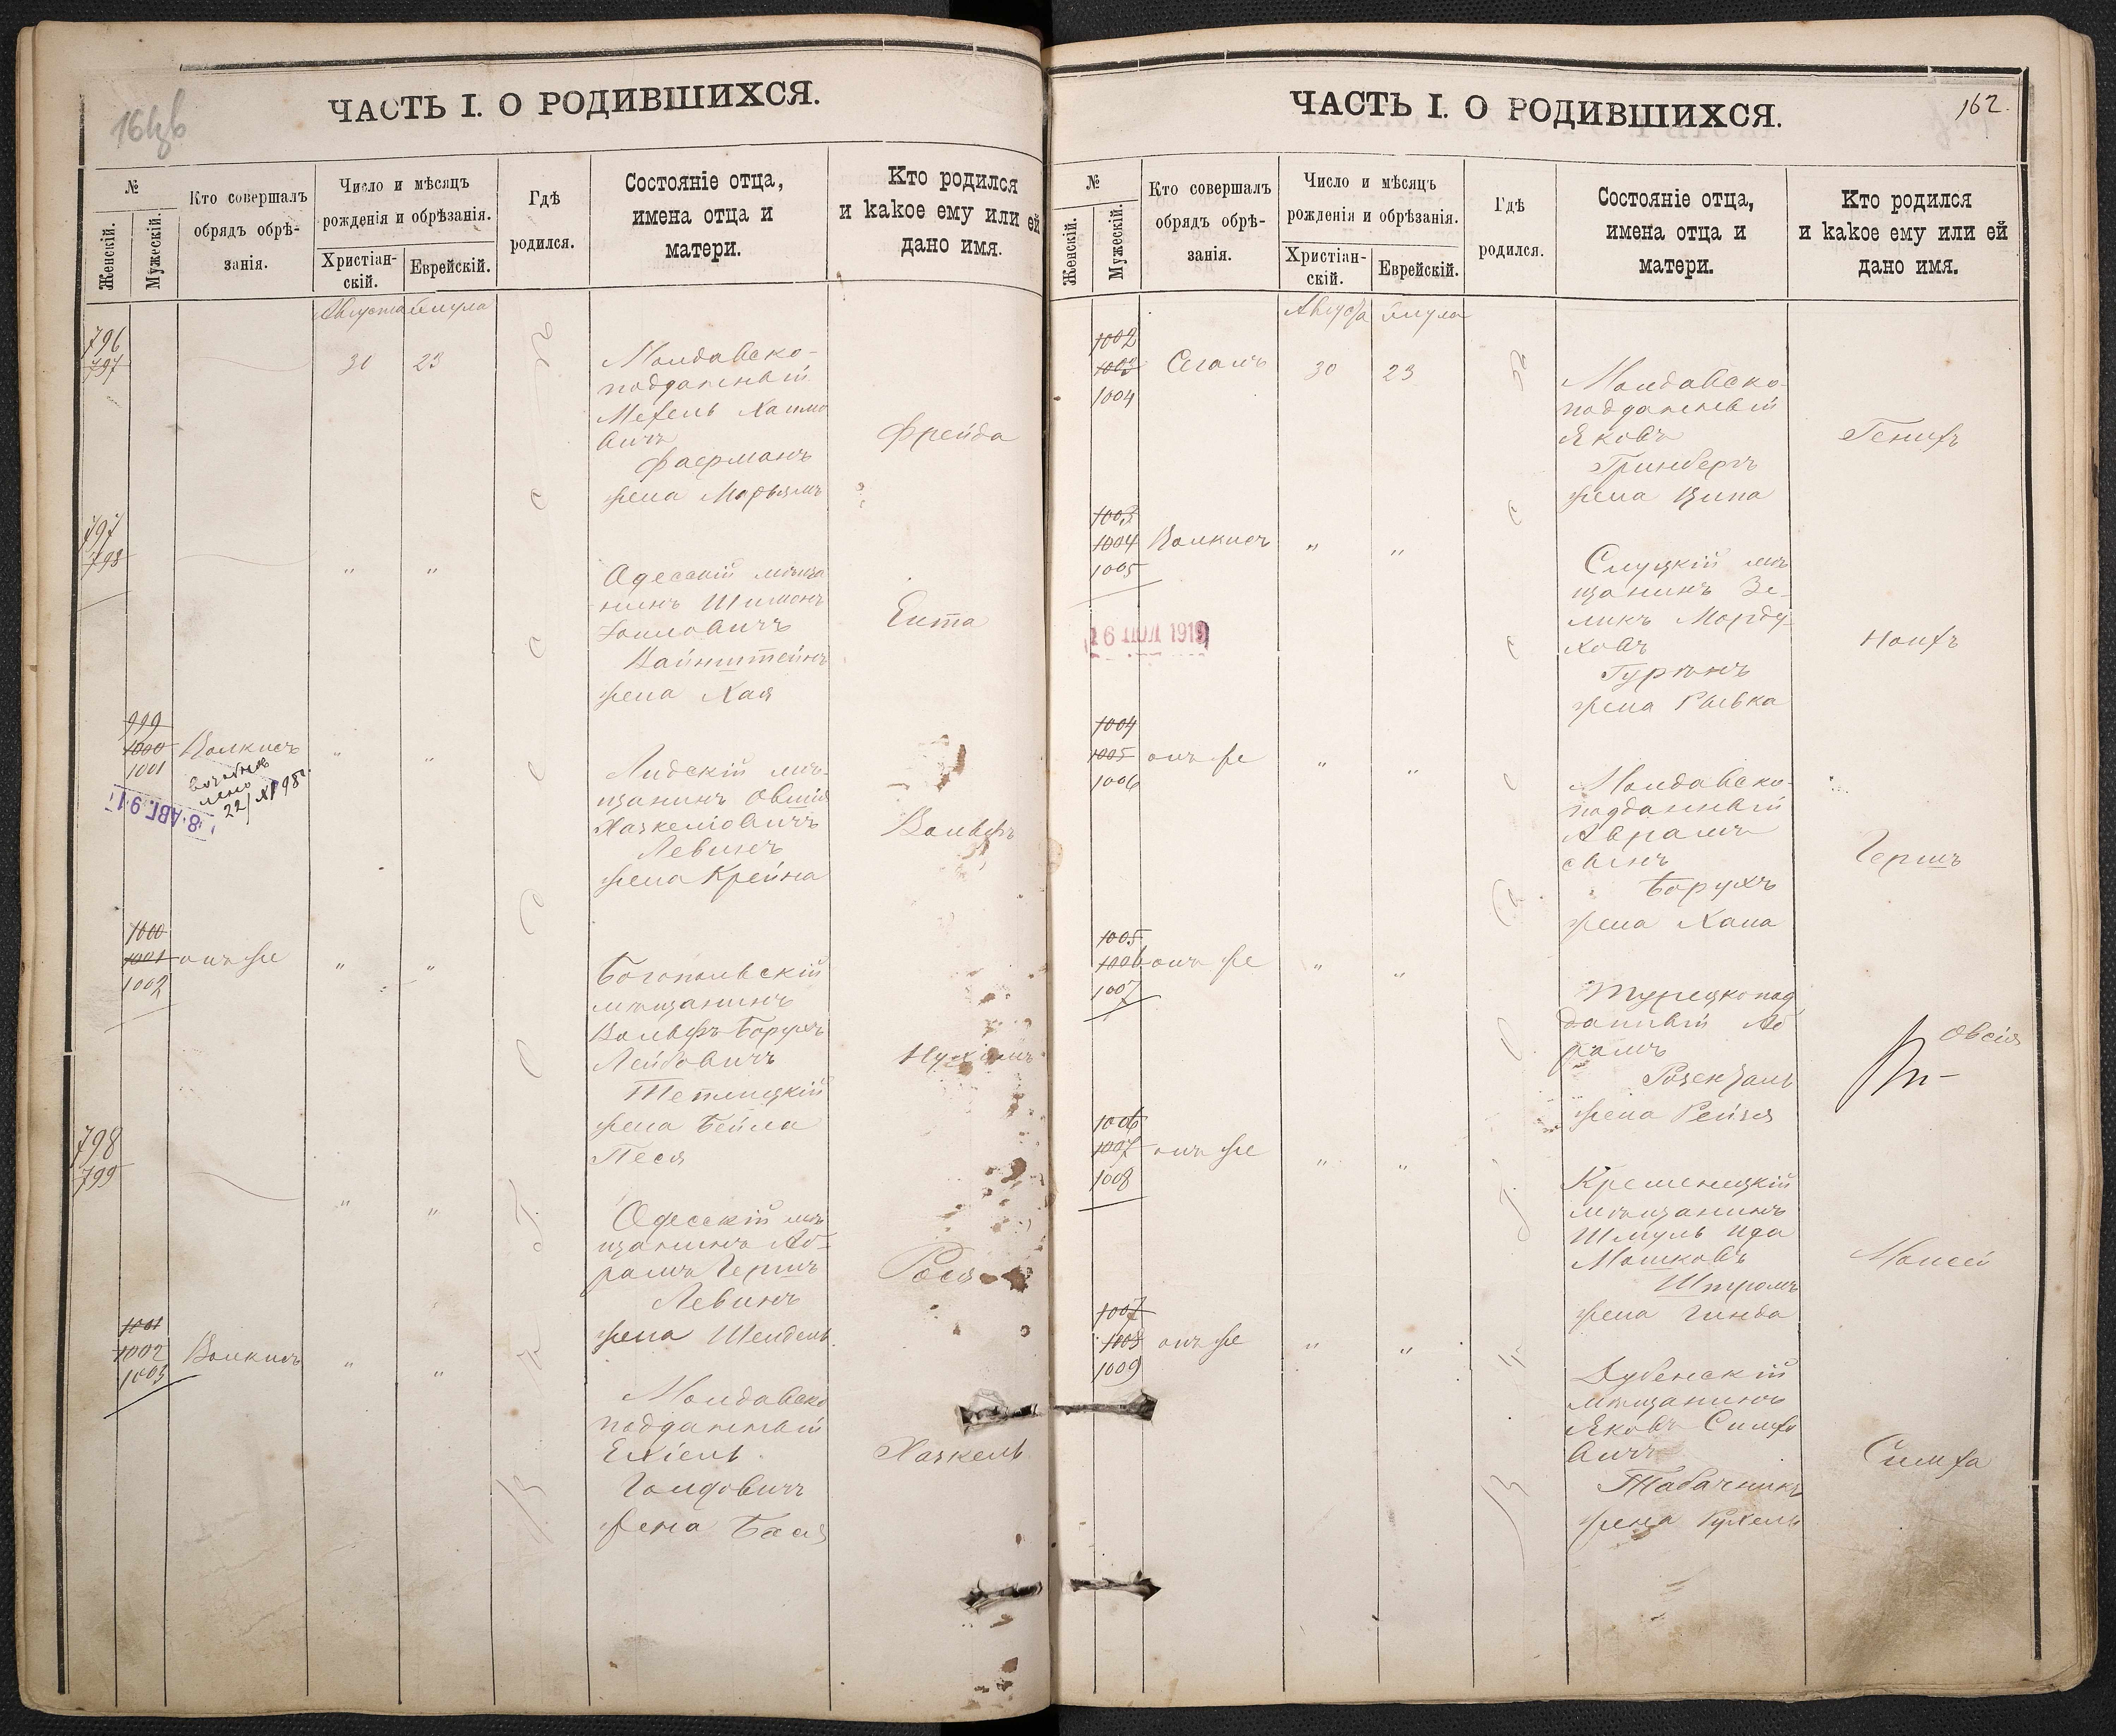 ЧАСТЬ I. О РОДИВШИХСЯ.
№
Женскій.
Мужескій.
Кто совершалъ
обрядъ обрѣ-
занія.
Число и мѣсяцъ
рожденія и обрѣзанія.
Христіан-
скій.
Еврейскій.
Гдѣ
родился.
Состояніе отца,
имена отца и
матери.
Кто родился
и какое ему или ей
дано имя.
Августа Елула
796
797
30 23
Молдавско-
подданный
Мехель Хаимо
вичъ
Фаерманъ
жена Марьямъ
Фрейда
797
798
" "
Одесскій мѣща
нинъ Шимонъ
Вайнштейнъ
жена Хая
Ента
999
1000
1001
Волкисъ
22/XI 98г.
8. АВГ. 91
" "
Лидскій мѣ-
щанинъ Овшія
Хаскеліовичъ
Левинъ
жена Крейна
Вольфъ
1000
1001
1002
онъ же
" "
Богопольскій
мѣщанинъ
Вольфъ Борухъ
Лейбовичъ
Тетлицкій
жена Бейла
Песя
Нухимъ
798
799
" "
Одесскій мѣ
щанинъ Аб-
рамъ Гершъ
Левинъ
жена Шендель
Рося
1001
1002
1003
Волкисъ
" "
Молдавско
подданный
Ехіель
Голдовичъ
жена Бася
Хаскель
ЧАСТЬ I. О РОДИВШИХСЯ.
162.
№
Женскій.
Мужескій.
Кто совершалъ
обрядъ обрѣ-
занія.
Число и мѣсяцъ
рожденія и обрѣзанія.
Христіан-
скій.
Еврейскій.
Гдѣ
родился.
Состояніе отца,
имена отца и
матери.
Кто родился
и какое ему или ей
дано имя.
Августа Елула
1002
1003
1004
Сегалъ
30 23
Молдавско-
подданный
Яковъ
Гринбергъ
жена Ципа
Генихъ
1003
1004
1005
Волкисъ
" "
16 ІЮЛ 1919
Слуцкій мѣ
щанинъ Зе-
ликъ Морду
ховъ
Гуринъ
жена Рывка
1004
1005
1006
онъ же
" "
Молдавско-
подданный
Аврамъ
сынъ
Борухъ
жена Хана
Гершъ
1005
1006
1007
онъ же
" "
Турецкопод
данный Аб
рамъ
Розенталь
жена Рейзя
Овсія
1006
1007
1008
онъ же
" "
Кременецкій
мѣщанинъ
Шмуль Ида
Мошковъ
Штромъ
жена Гинда
Моисей
1007
1008
1009
онъ же
" "
Дубенскій
мѣщанинъ
Яковъ Симхо
вичъ
Табачникъ
жена Рухель
Симха